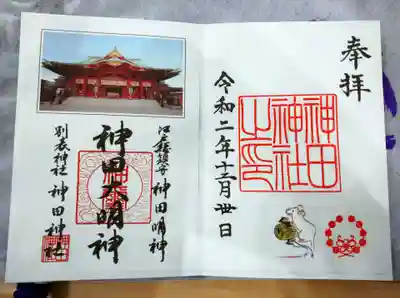 奉拝
神田
神社
之印
令和二年十二月丗日
江戸総鎮守 神田明神
神田大明神
別表神社 神田神社